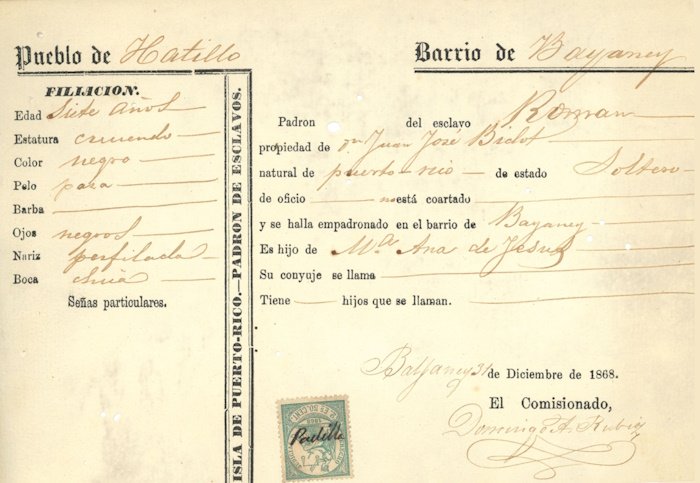 Pueblo de Hatillo
Barrio de Bayaney
FILIACION.
Edad siete años
Estatura creciendo
Color negro
Pelo pasa
Barba
Ojos negros
Nariz perfilada
Boca chica
Señas particulares.
ISLA DE PUERTO-RICO.—PADRON DE ESCLAVOS.
Padron del esclavo Roman
propiedad de Dn Juan José Bidot
natural de puerto-rico de estado Soltero
de oficio no está coartado
y se halla empadronado en el barrio de Bayaney
Es hijo de Ma. Ana de Jesus
Su conyuje se llama
Tiene hijos que se llaman.
Bayaney 31 de Diciembre de 1868.
El Comisionado,
Domingo A. Rubio